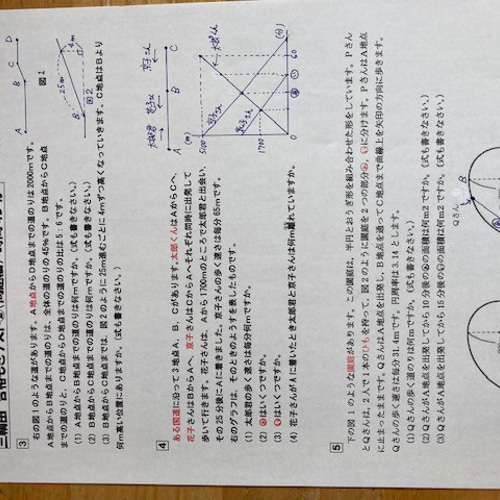 3
右の図1のような道があります。A地点からD地点までの道のりは2000mです。
A地点からB地点までの道のりは、全体の道のりの45%です。B地点からC地点
までの道のりと、C地点からD地点までの道のりの比は5:6です。
(1) A地点からB地点までの道のりは何mですか。(式も書きなさい。)
(2) B地点からC地点までの道のりは何mですか。(式も書きなさい。)
(3) B地点からC地点までは、図2のように25m進むごとに4mずつ高くなっていきます。C地点はBより
何m高い位置にありますか。(式も書きなさい。)
A B C D
図1
25m 4m
B
図2
4
ある国道に沿って3地点A、B、Cがあります。太郎くんはAからCへ、
花子さんはBからAへ、京子さんはCからAへそれぞれ同時に出発して
歩いて行きます。花子さんは、Aから1700mのところで太郎君と出会い、
その25分後にAに着きました。京子さんの歩く速さは毎分65mです。
右のグラフは、そのときのようすを表したものです。
(1) 太郎君の歩く速さは毎分何mですか。
(2) あはいくつですか。
(3) いはいくつですか。
(4) 花子さんがAに着いたとき太郎君と京子さんは何m離れていますか。
太郎君 花子さん 京子さん
A B C
(m)
5100
1700
0
京子さん
太郎さん
60
(分)
5
下の図1のような花園があります。この園庭は、半円とおうぎ形を組み合わせた形をしています。Pさん
とQさんは、2人で1本のひもを持って、図2のように園庭を2つの部分あ、いに分けます。PさんはA地点
に止まったままです。QさんはA地点を出発し、B地点を通ってC地点まで曲線上を矢印の方向に歩きます。
Qさんの歩く速さは毎分31.4mです。円周率は3.14とします。
(1) Qさんの歩く道のりは何mですか。(式も書きなさい。)
(2) QさんがA地点を出発してから10分後のあの面積は何m2ですか。(式も書きなさい。)
(3) QさんがA地点を出発してから15分後のいの面積は何m2ですか。(式も書きなさい。)
Qさん
B